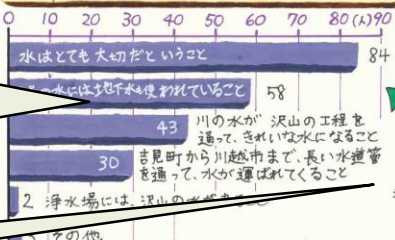 0 10 20 30 40 50 60 70 80(人)90
水はとても大切だということ 84
の水には地下水も使われていること 58
43 川の水が沢山の工程を
通って、きれいな水になること
30 吉見町から川越市まで、長い水道管
を通って、水が運ばれてくること
2 浄水場には、沢山の水が
その他